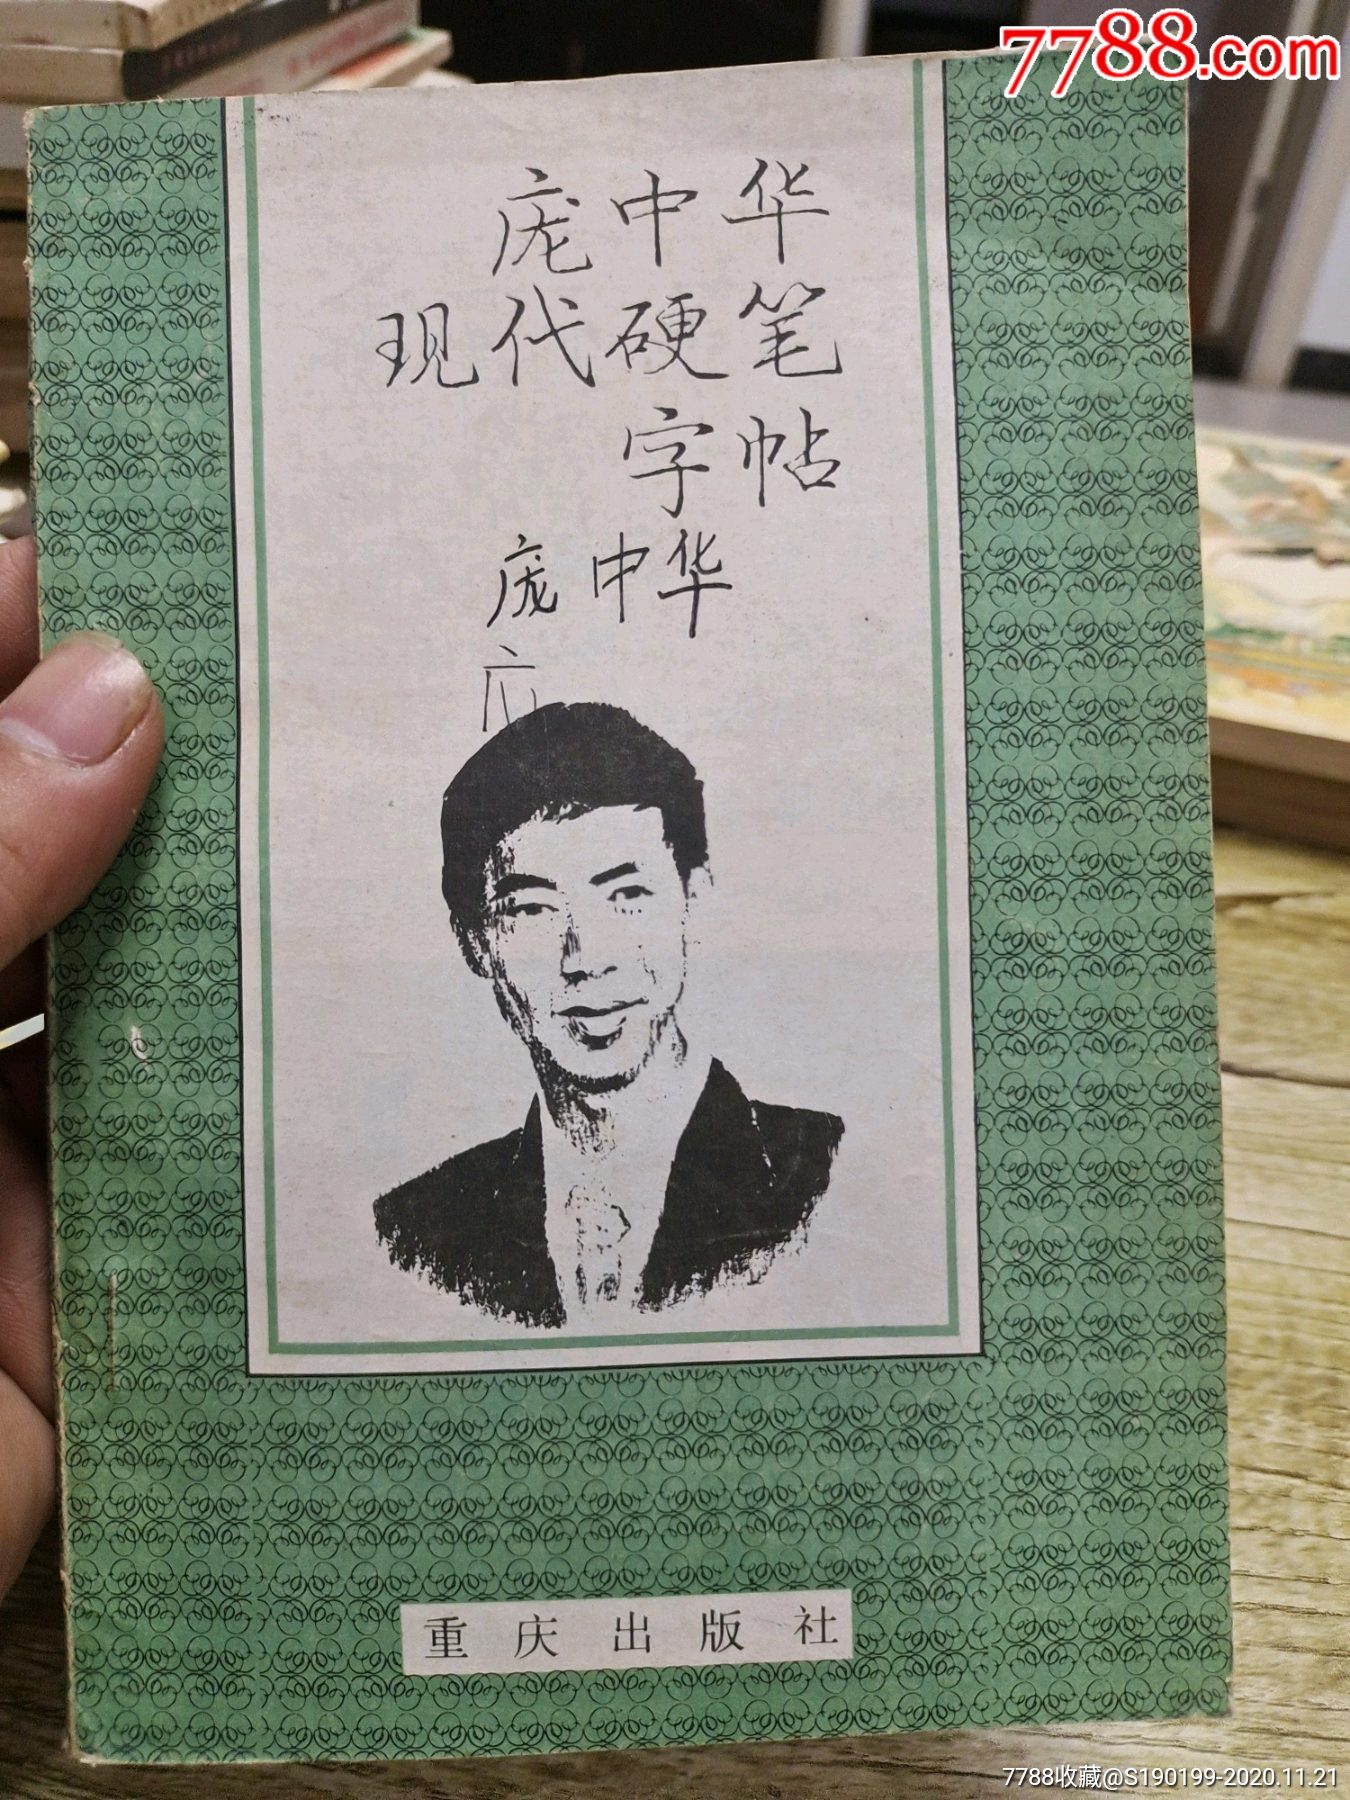 7788.com
庞中华
现代硬笔
字帖
庞中华
重庆出版社
7788收藏@S190199-2020.11.21